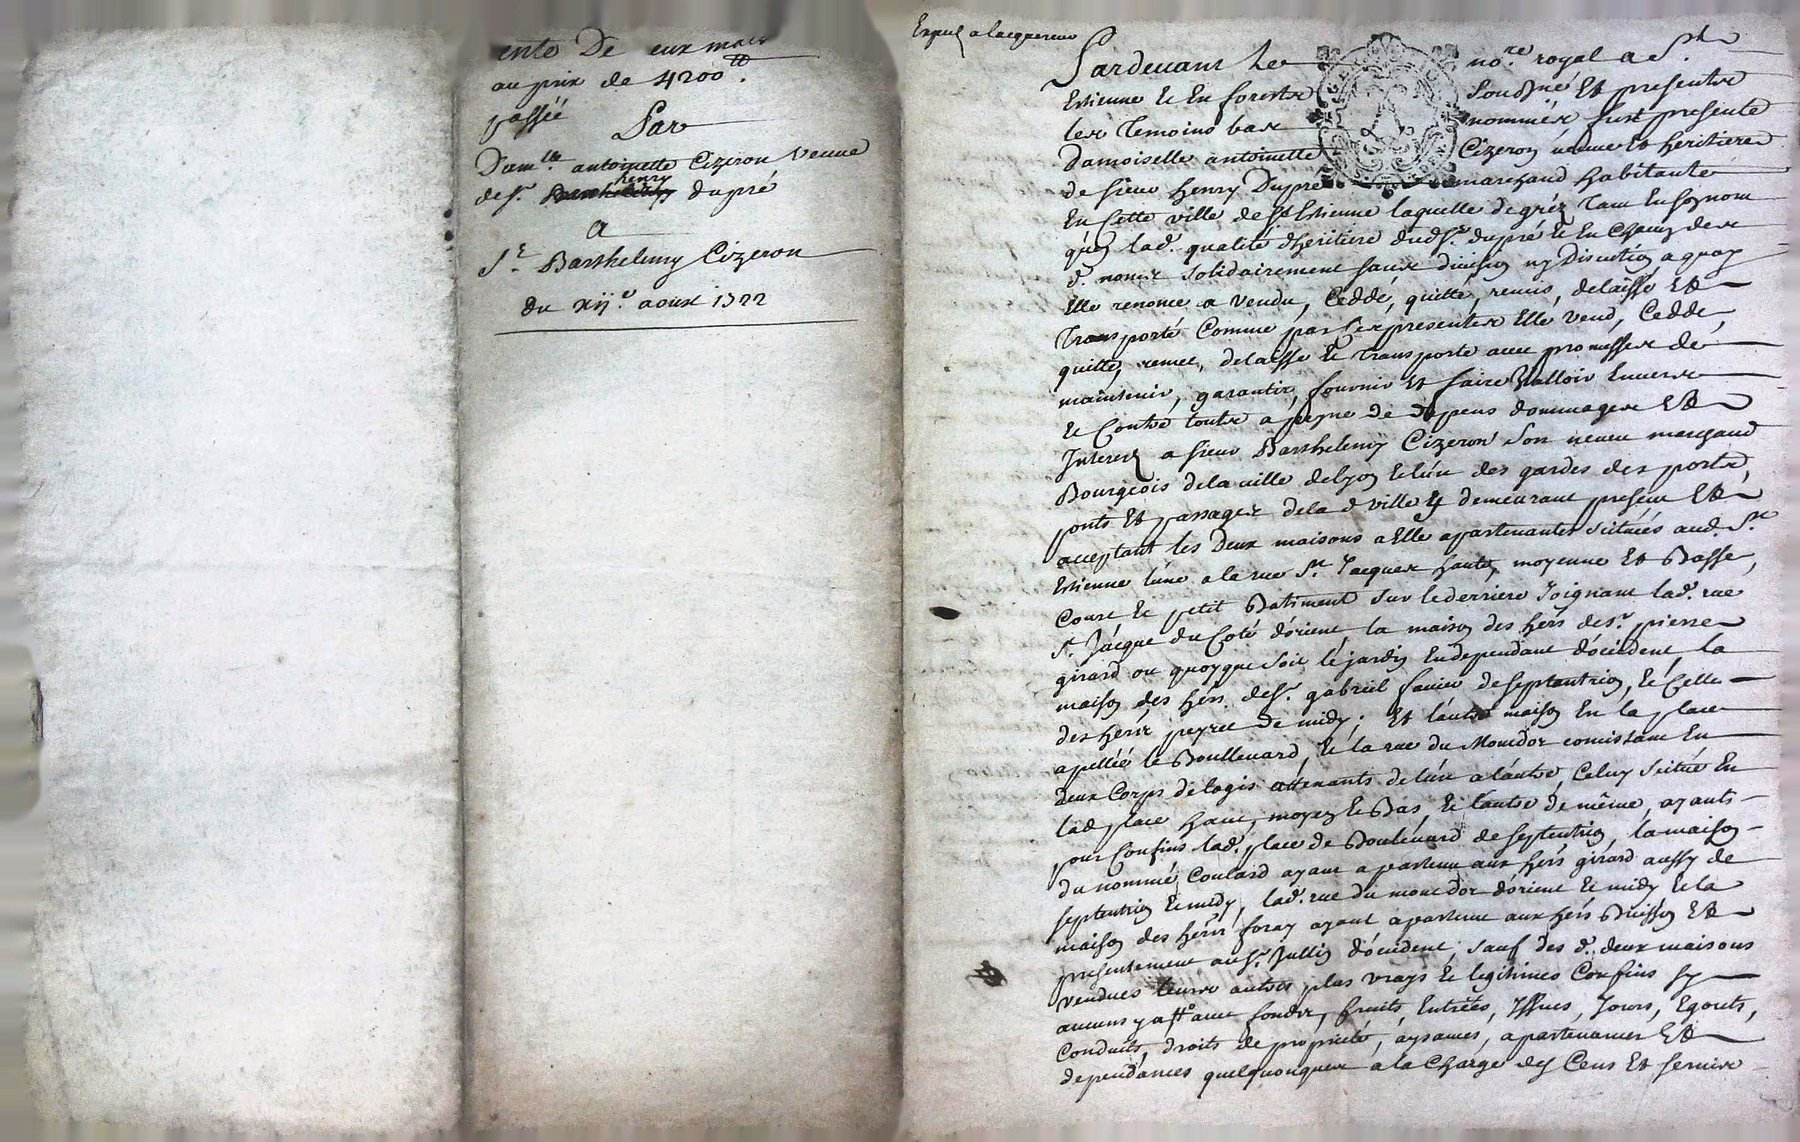 ente De eux mais
au prix de 4200 tt.
passée
Par
Dam.lle antoinette Cizeron Veuve
de s.r henry dupré
A
S.r Barthelemy Cizeron
Du xij.e aoust 1722
Expéd a lacquereur
Pardevant Le no.re royal a S.t
Estienne Et En forestz Soussigné Et presentz
les Temoins bas nommés fust presente
Damoiselle antoinette Cizeron veuve Et heritiere
de sieur henry Dupré marchand habitante
En Cette ville de S.t Estienne laquelle de gré Tant En son nom
qu'en lad. qualité d'heritiere dud. S.r dupré Et En Chacun des
d. noms solidairement sans division ny Discution a quoy
Elle renonce a vendu, Ceddé, quitté, remis, delaissé Et
Transporté Comme par Ces presentes Elle vend, Cedde,
quitte, remet, delaisse Et Transporte avec promesse de
maintenir, garantir, fournir Et faire Valloir Envers
Et Contre toutes a peyne de depens dommages Et
Interest a sieur Barthelemy Cizeron son neveu marchand
Bourgeois de la ville de lyon Et l'un des gardes des ports,
ponts Et passages de lad ville y demeurant present Et
acceptant les Deux maisons a Elle apartenantes scituées aud. S.t
Estienne l'une a la rue S.t Jacques haute, moyenne Et Basse,
Court Et petit Batiment sur le derriere Joignant lad. rue
S.t Jacque du Coté d'orient, la maison des hérs de s.r pierre
girard ou quoyque soit le jardin En dependant d'occident, la
maison des hérs de S.r gabriel favier de septentrion, Et Celle
des hérs peyret de midy; Et l'autre maison En la place
apellée le Boullevard, Et la rue du Moucdor consistant En
deux Corps de logis attenants de l'un a l'autre, Celuy scitué En
lad place haut, moyen Et Bas, Et l'autre de même, ayants
pour Confins lad. place de Boulevard de septentrion, la maison
du nommé Coulard ayant apartenu aux hérs girard aussy de
septentrion Et midy, lad. rue du moucdor d'orient Et midy Et la
maison des hérs foray ayant apartenu aux hérs Buisson Et
presentement au S.r Jullin d'occident, sauf des d. deux maisons
vendues leurs autres plus vrays Et legitimes Confins sy
aucuns y a tt avec fonds, fruits, Entrées, Issues, Jours, Egouts,
Conduits, droits de proprieté, aysances, apartenances Et
dependances quelquonques a la Charge des Cens Et servis